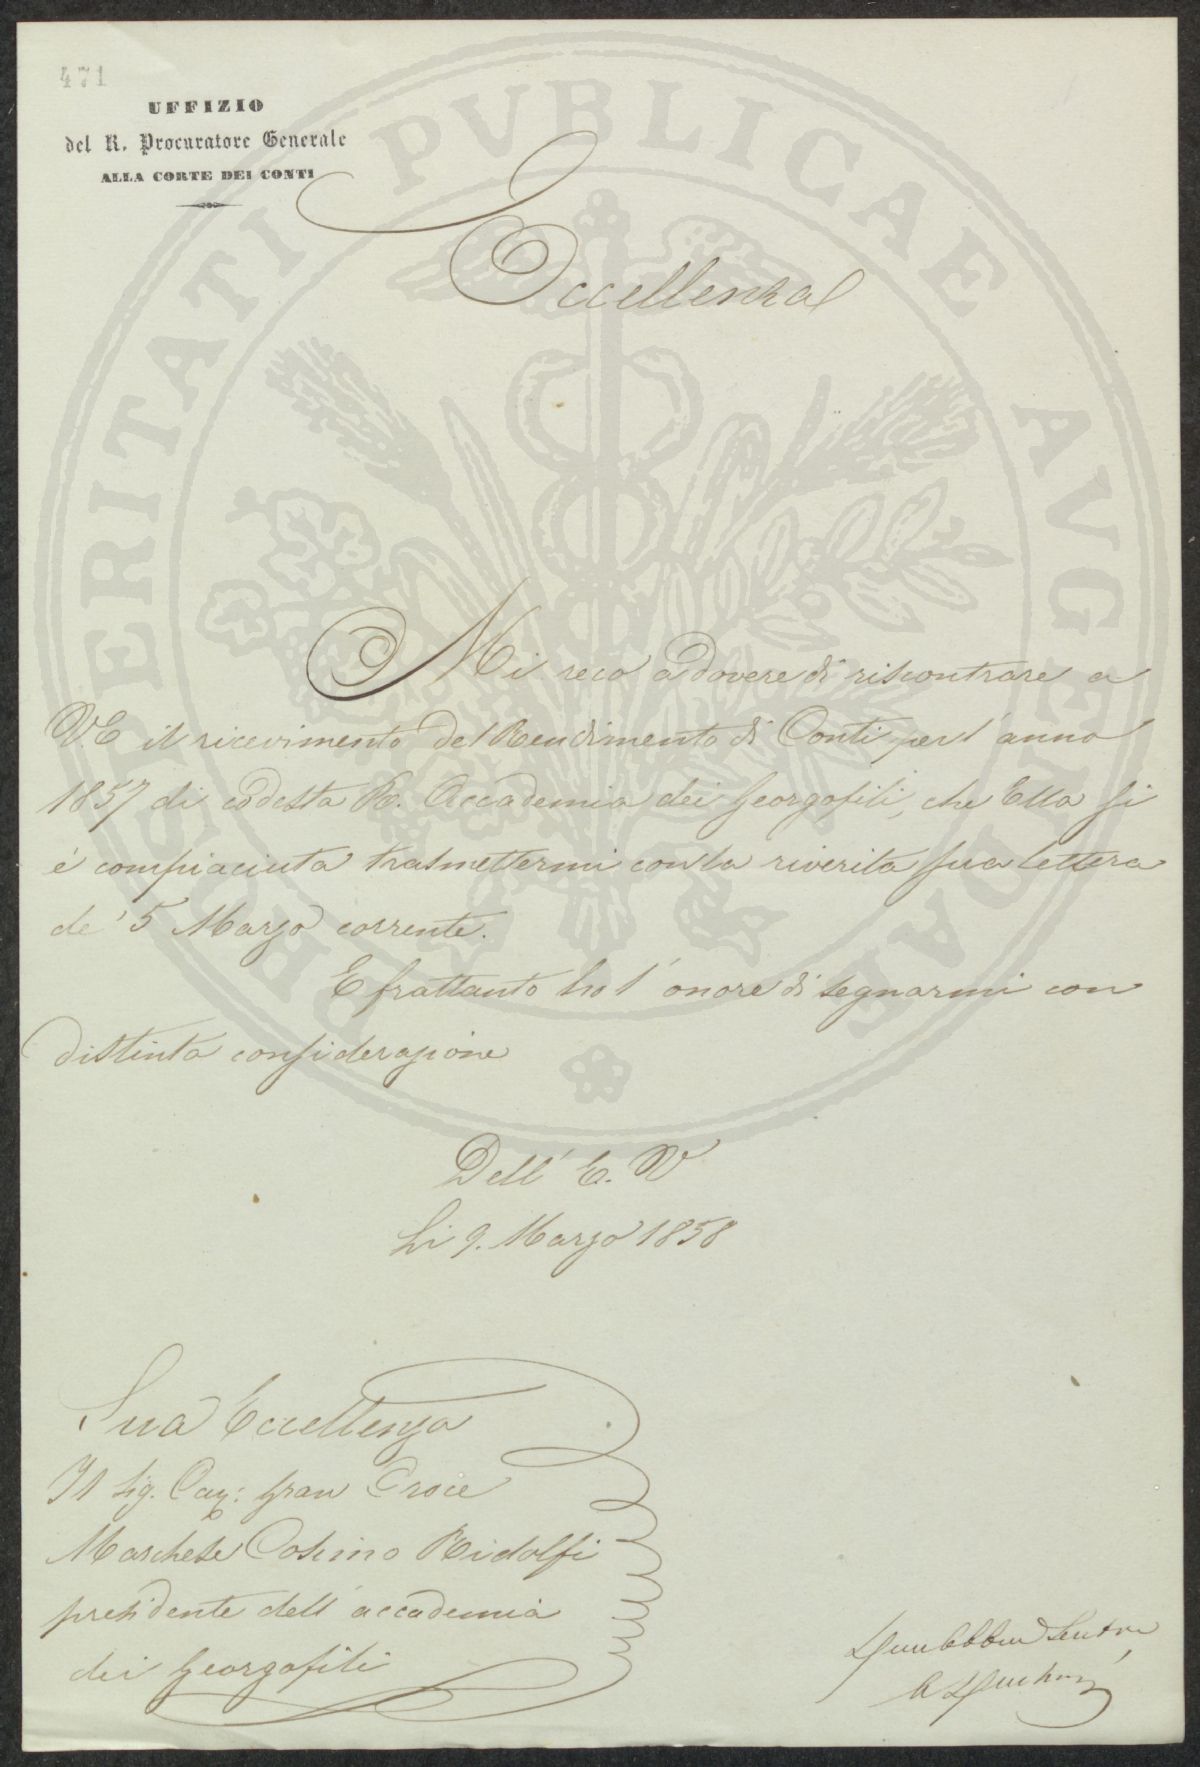 471
UFFIZIO
del R. Procuratore Generale
ALLA CORTE DEI CONTI
PROSPERITATI PVBLICAE AVGENDAE
Eccellenza
Mi reco a dovere di riscontrare a
V.E il ricevimento del Rendimento di Conti per l'anno
1857 di codesta R. Accademia dei Georgofili, che Ella si
é compiaciuta trasmettermi con la riverita sua lettera
de' 5 Marzo corrente.
E frattanto ho l'onore di segnarmi con
distinta considerazione
Dell' E. V
Li 9. Marzo 1858
Sua Eccellenza
Il Sig. Cav: Gran Croce
Marchese Cosimo Ridolfi
presidente dell'accademia
dei Georgofili